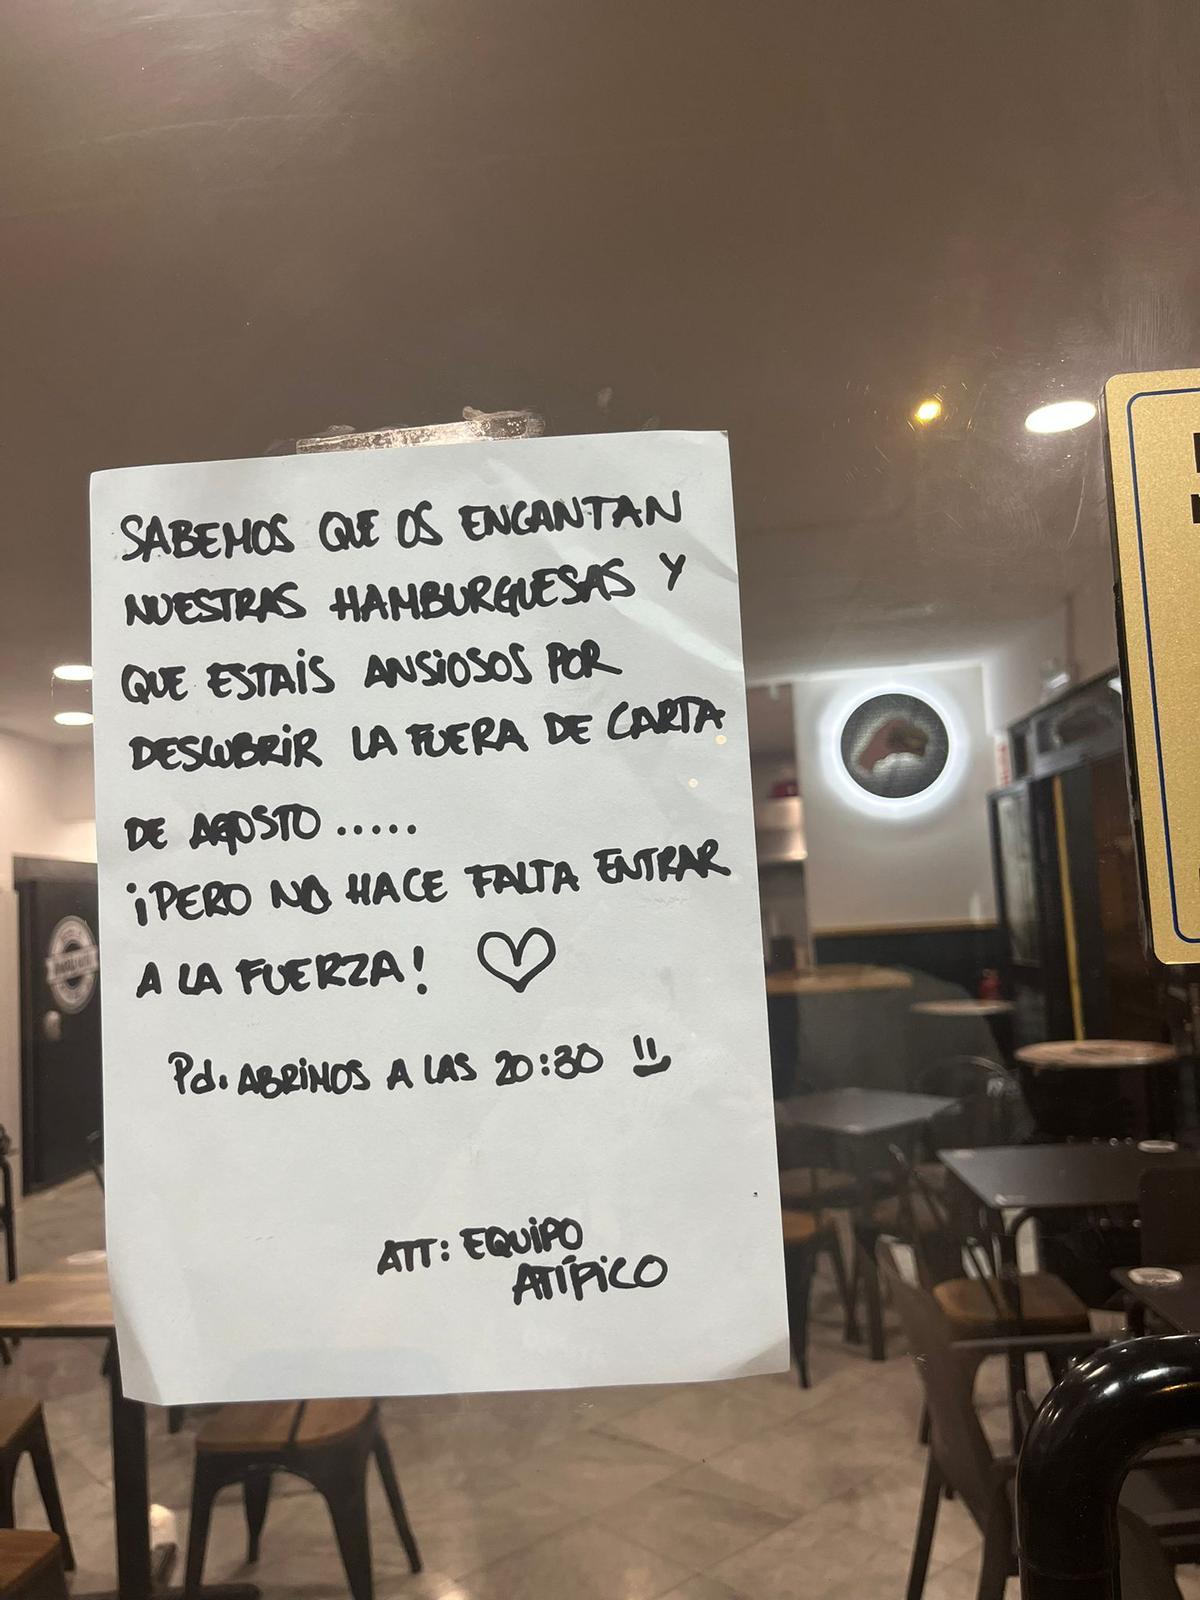 SABEMOS QUE OS ENCANTAN
NUESTRAS HAMBURGUESAS Y
QUE ESTAIS ANSIOSOS POR
DESCUBRIR LA FUERA DE CARTA
DE AGOSTO .....
¡PERO NO HACE FALTA ENTRAR
A LA FUERZA!
Pd. ABRIMOS A LAS 20:30
ATT: EQUIPO
ATÍPICO